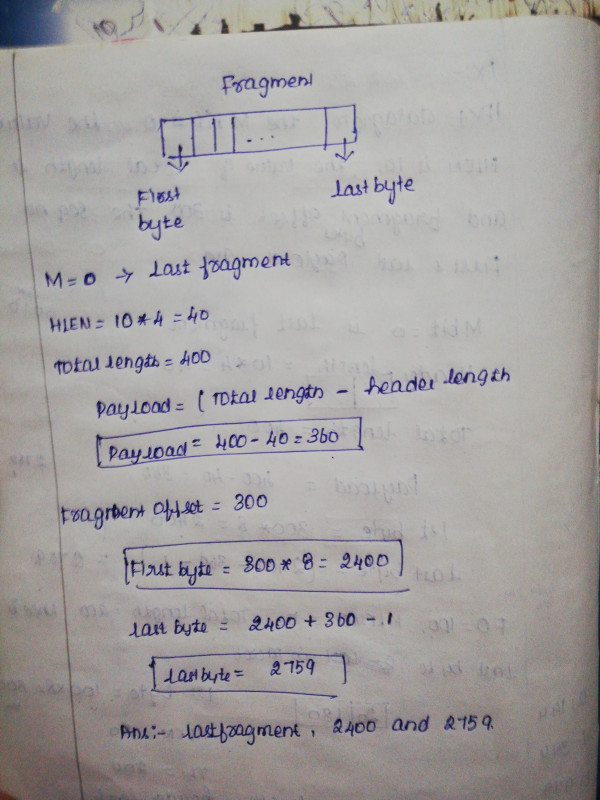 Fragment
...
First
byte
last byte
M = 0 → last fragment
HLEN = 10 * 4 = 40
Total length = 400
Payload = (Total length - header length
Payload = 400 - 40 = 360
Fragment offset = 300
First byte = 300 * 8 = 2400
last byte = 2400 + 360 - 1
last byte = 2759
Ans:- last fragment, 2400 and 2759.